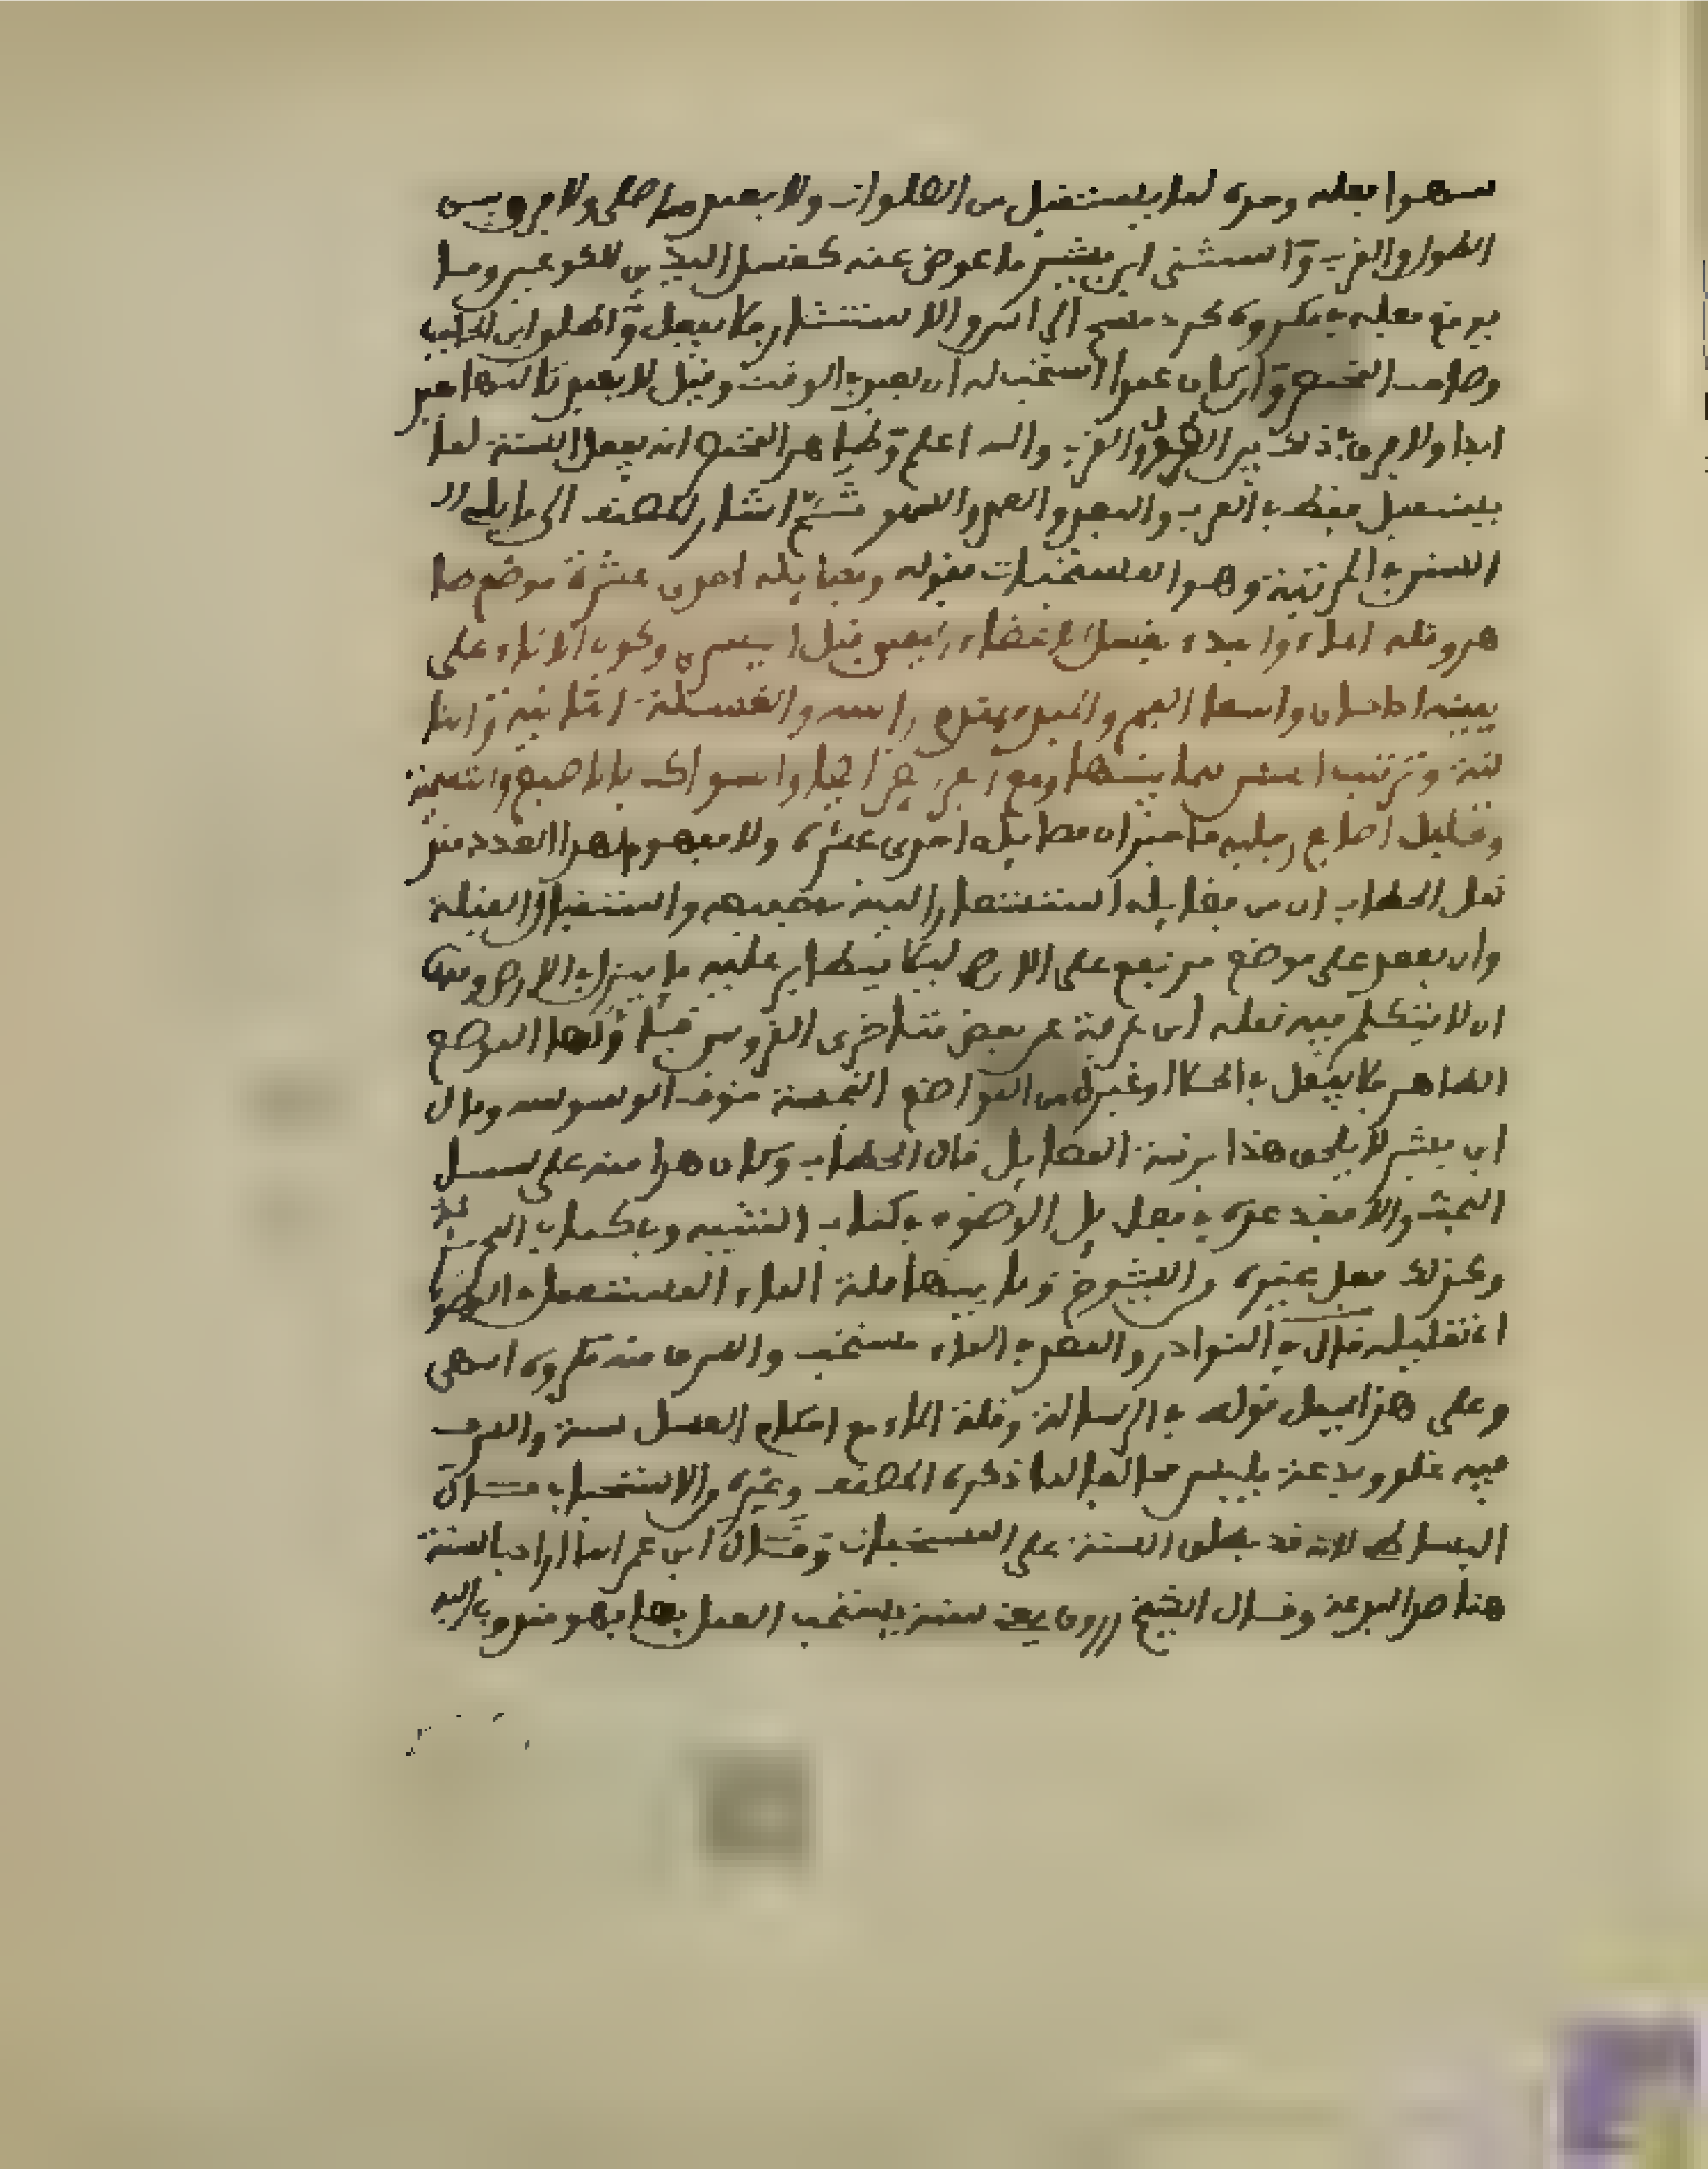 سهوا فعله وحده لما يستقبل من الصلوات ولا يعيد ما صلى ولا فرق بين
الطول والقرب واستثنى ابن بشير ما عوض عنه كغسل اليدين للكوعين وما
يوقع فعله في مكروه كرد مسح الراس والاستنثار فلا يفعل واطلق ابن الحاجب
وصاحب المختصر وان كان عمدا استحب له ان يعيد في الوقت وقيل لا يعيد كالسهو
ابدا ولا فرق في ذلك بين الطول والقرب والله اعلم وظاهر المختصر انه يفعل السنة لما
يستقبل فقط في القرب والبعد والعمد والسهو ثم اشار المصنف الى ما يلي
السنن في المرتبة وهو المستحبات بقوله وفضايله احدى عشرة موضع طا
هر وقلة الماء والبدء بغسل الاعضاء اليمين قبل اليسرى وكون الاناء على
يمينه ان كان واسع الفم والبدء بمقدم راسه والغسلة الثانية والثا
لثة وترتيب السنن فيما بينها ومع الفرايض والسواك بالاصبع والتسمية
وتخليل اصابع رجليه فاخبر ان فضايله احدى عشرة ولا مفهوم لهذا العدد فقد
نقل الحطاب ان من فضايله استشعار النية في جميعه واستقبال القبلة
وان يقعد على موضع مرتفع على الارض ليلا يتطاير عليه ما ينزل في الارض و
ان لا يتكلم فيه نقله ابن عرفة عن بعض متاخري القرويين اما الموضع
الطاهر فلا يفعل في الخلا وغيره من المواضع النجسة خوف الوسوسة وقال
ابن بشير لا يلحق هذا برتبة الفضايل قال الحطاب وكان هذا منه على سبيل
البحث والا فقد عده في فضايل الوضوء في كتاب التنبيه وفي كتاب التحرير له
وكذلك فعل غيره من الشيوخ ومما بينها قلة الماء المستعمل في الوضوء
اي تقليله قال في النوادر والقصد في الماء مستحب والسرف منه مكروه انتهى
وعلى هذا يحمل قوله في الرسالة وقلة الماء مع احكام الغسل سنة والسرف
فيه غلو وبدعة فليس مخالفا لما ذكره المصنف وغيره من الاستحباب قال
البساطي لانه قد يطلق السنة على المستحبات وقال ابن عمر انما اراد بالسنة
هنا ضد البدعة وقال الشيخ زروق يعني سنة يستحب العمل بها فهو مندوب اليه